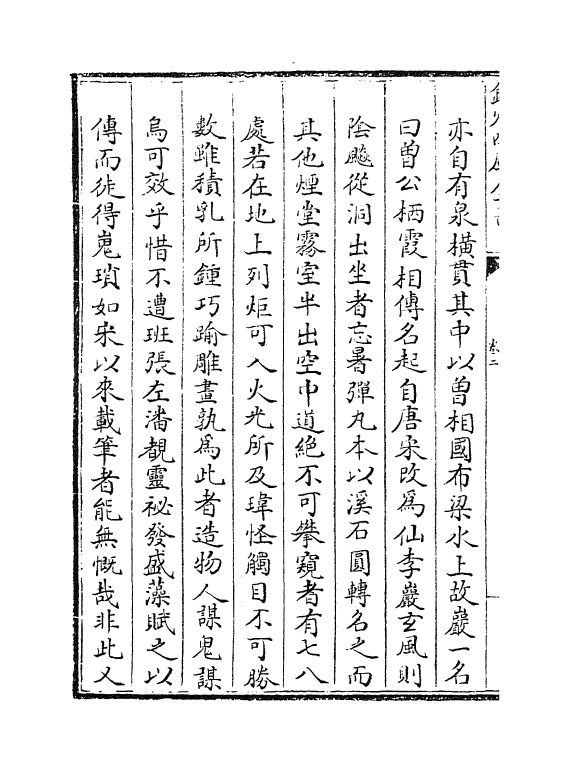 亦自有泉橫貫其中以曽相國布梁水上故巖一名
曰曽公栖霞相傳名起自唐宋改爲仙李巖玄風則
陰颸從洞出坐者忘暑彈丸本以溪石圓轉名之而
其他煙堂霧室半出空中道絶不可攀窺者有七八
處若在地上列炬可入火光所及瑋怪觸目不可勝
數雖積乳所鍾巧踰雕畫孰爲此者造物人謀鬼謀
烏可效乎惜不遭班張左潘覩靈祕發盛藻賦之以
傳而徒得嵬瑣如宋以來載筆者能無慨哉非此又
卷二